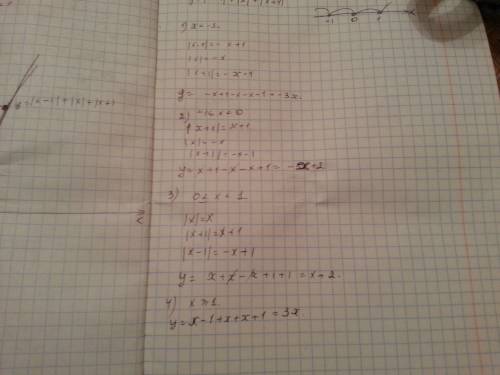 y = |x-1|+|x|+|x+1|
-1 0 1 x
y = |x-1|+|x|+|x+1|
1) x < -1
|x-1| = -x+1
|x| = -x
|x+1| = -x-1
y = -x+1-x-x-1 = -3x.
2) -1≤x<0
|x+1| = x+1
|x| = -x
|x-1| = -x+1
y = x+1-x-x+1 = -x+2
3) 0≤x<1
|x|=x
|x+1|=x+1
|x-1|=-x+1
y= x+x-x+1+1=x+2.
4) x≥1
y=x-1+x+x+1=3x.